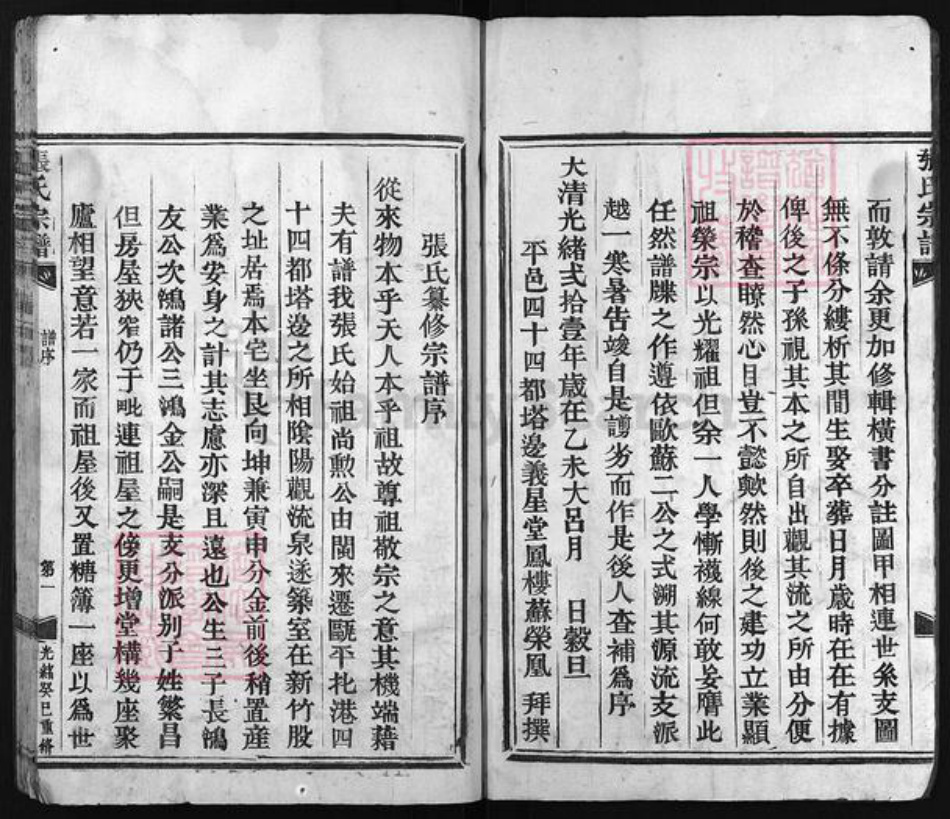 張氏宗譜
而敦請余更加修輯橫書分註圖甲相連世系支圖
無不條分縷析其間生娶卒葬日月歲時在在有據
俾後之子孫視其本之所自出觀其流之所由分便
於稽查瞭然心目豈不懿歟然則後之建功立業顯
祖榮宗以光耀祖但余一人學慚襪線何敢妄膺此
任然譜牒之作遵依歐蘇二公之式溯其源流支派
越一寒暑告竣自是謭劣而作是後人查補爲序
大清光緒弍拾壹年歲在乙未大呂月 日穀旦
平邑四十四都塔邊義星堂鳳樓蘇榮凰 拜撰
張氏纂修宗譜序
從來物本乎天人本乎祖故尊祖敬宗之意其機端藉
夫有譜我張氏始祖尚勲公由閩來遷甌平北港四
十四都塔邊之所相陰陽觀流泉遂築室在新竹股
之址居焉本宅坐艮向坤兼寅申分金前後稍置產
業爲安身之計其志慮亦深且遠也公生三子長鴻
友公次鴻諸公三鴻金公嗣是支分派别子姓繁昌
但房屋狹窄仍于毗連祖屋之傍更增堂構幾座聚
廬相望意若一家而祖屋後又置糖簿一座以爲世
張氏宗譜
譜序
第一
光緒癸巳重修